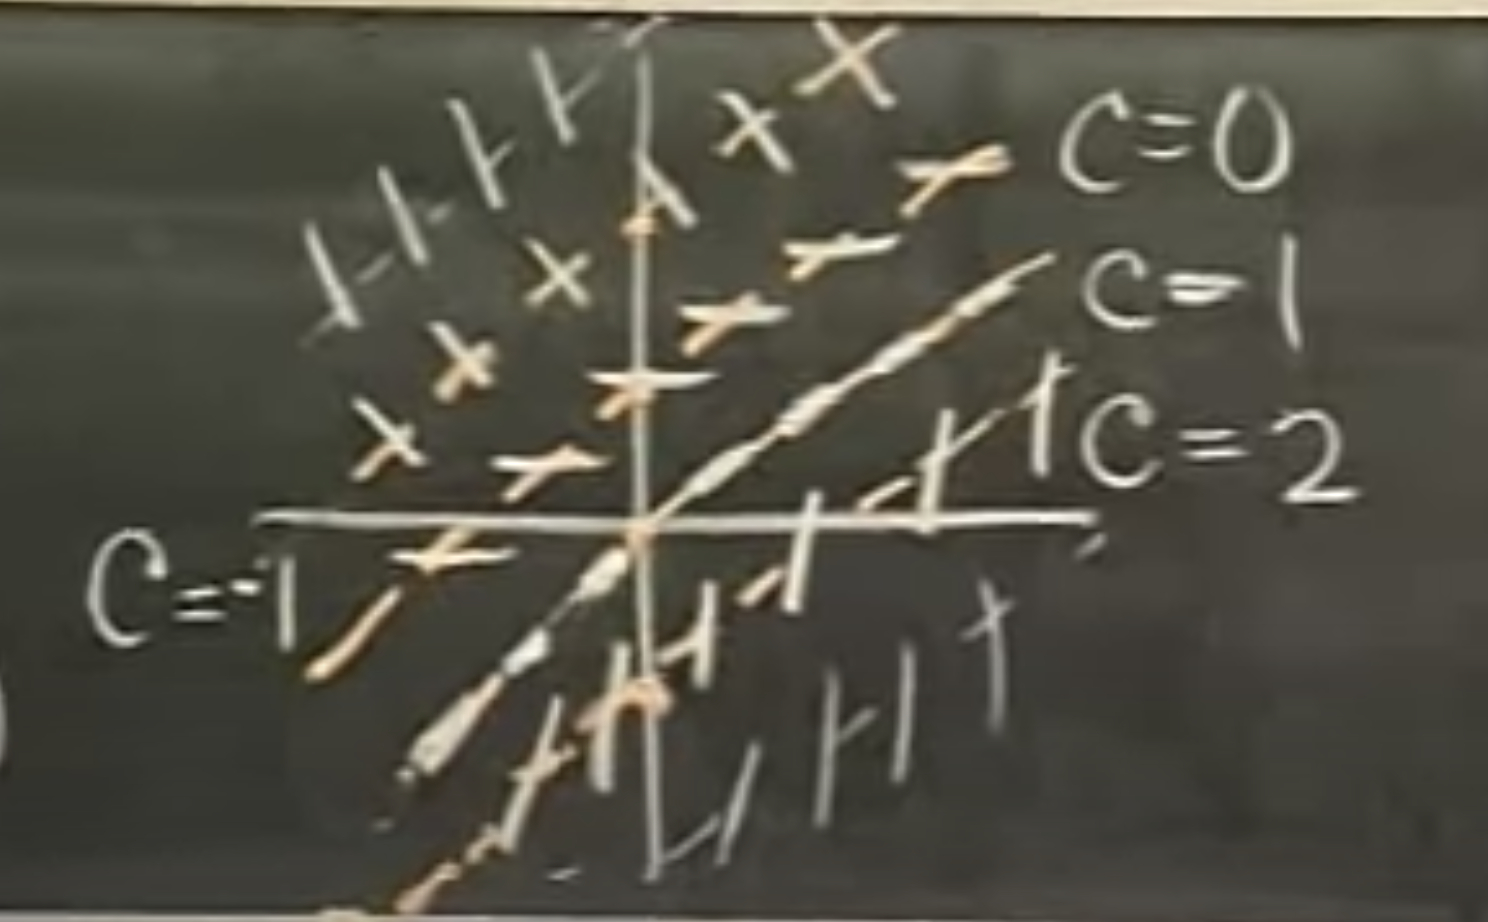 C=0
C=1
C=2
C=-1